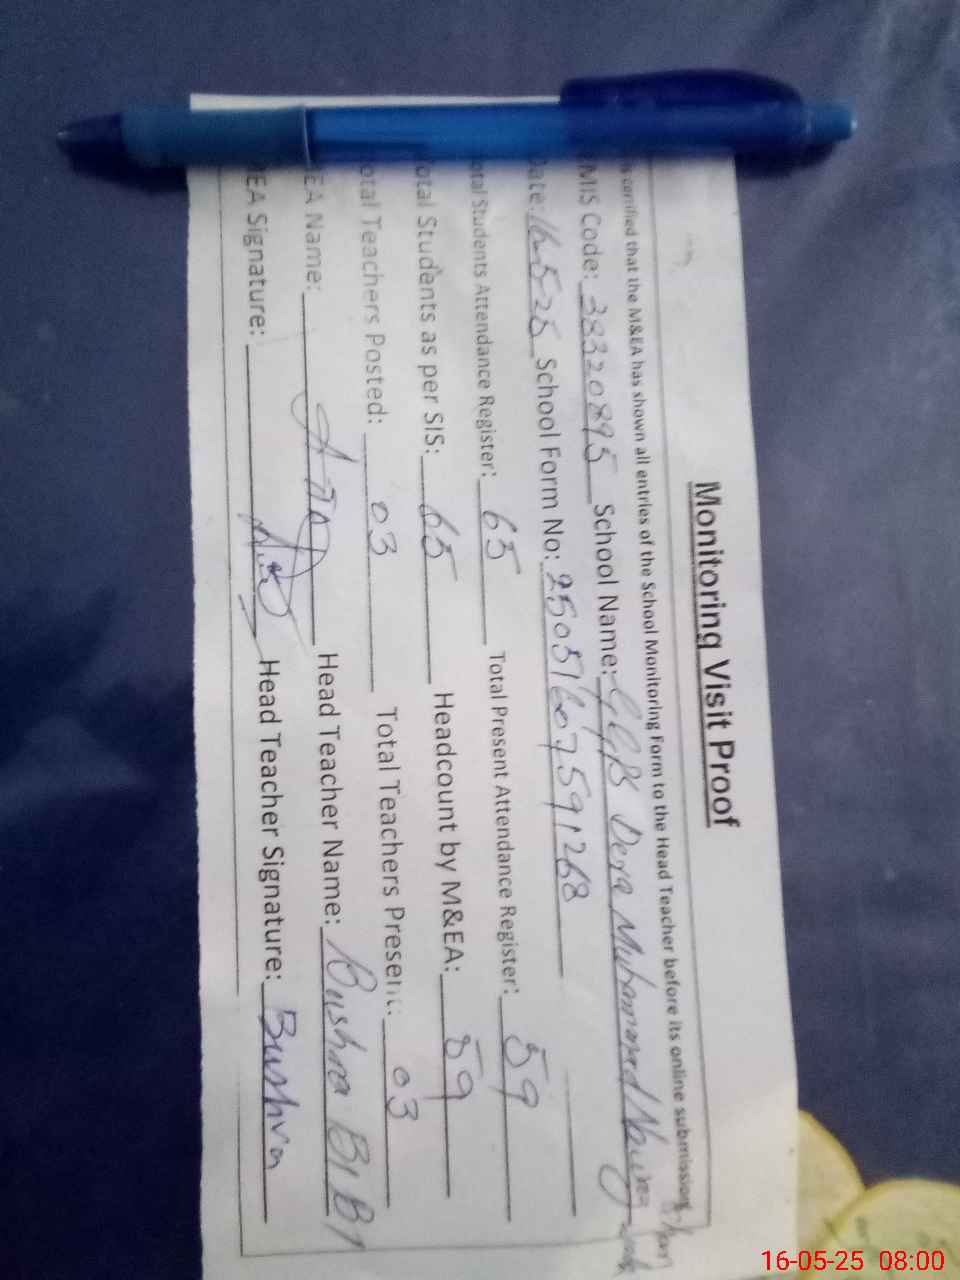 Monitoring Visit Proof
is certified that the M&EA has shown all entries of the School Monitoring Form to the Head Teacher before its online submission
MIS Code: 38320895 School Name: GGPS Dera Muhammad Nawaz
Date: 16-5-25 School Form No: 25051607591268
otal Students Attendance Register: 65 Total Present Attendance Register: 59
otal Students as per SIS: 65 Headcount by M&EA: 59
otal Teachers Posted: 03 Total Teachers Present: 03
EA Name: Head Teacher Name: Bushra BiBi
EA Signature: Head Teacher Signature: Bushra
16-05-25 08:00